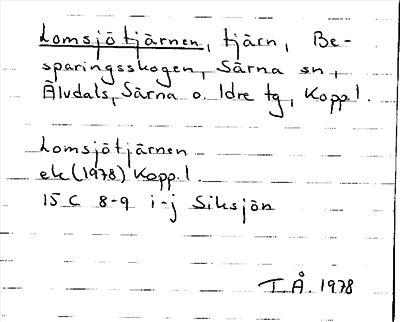 Lomsjötjärnen, tjärn, Be-
sparingsskogen, Särna sn,
Älvdals, Särna o. Idre tg, Kopp.l.
Lomsjötjärnen
ek (1978) Kopp.l.
15 C 8-9 i-j Siksjön
T.Å. 1978